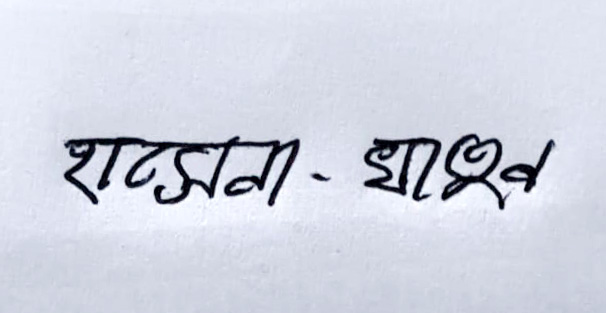 হাসেনা - খাতুন